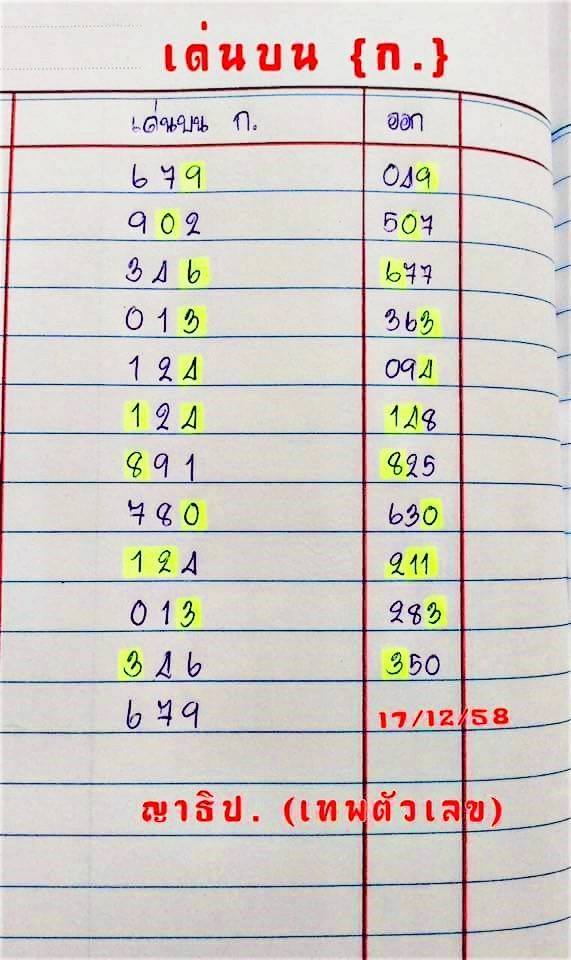 เด่นบน {ก.}
เด่นบน ก. ออก
679 049
902 507
346 677
013 363
124 094
124 148
891 825
780 630
124 211
013 283
346 350
679 17/12/58
ญาธิป. (เทพตัวเลข)